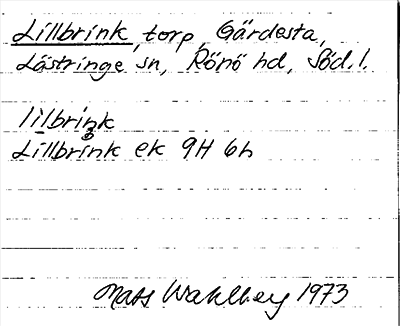 Lillbrink, torp, Gärdesta,
Lästringe sn, Rönö hd, Söd. l.
lilbrink
Lillbrink ek 9H 6h
Mats Wahlberg 1973